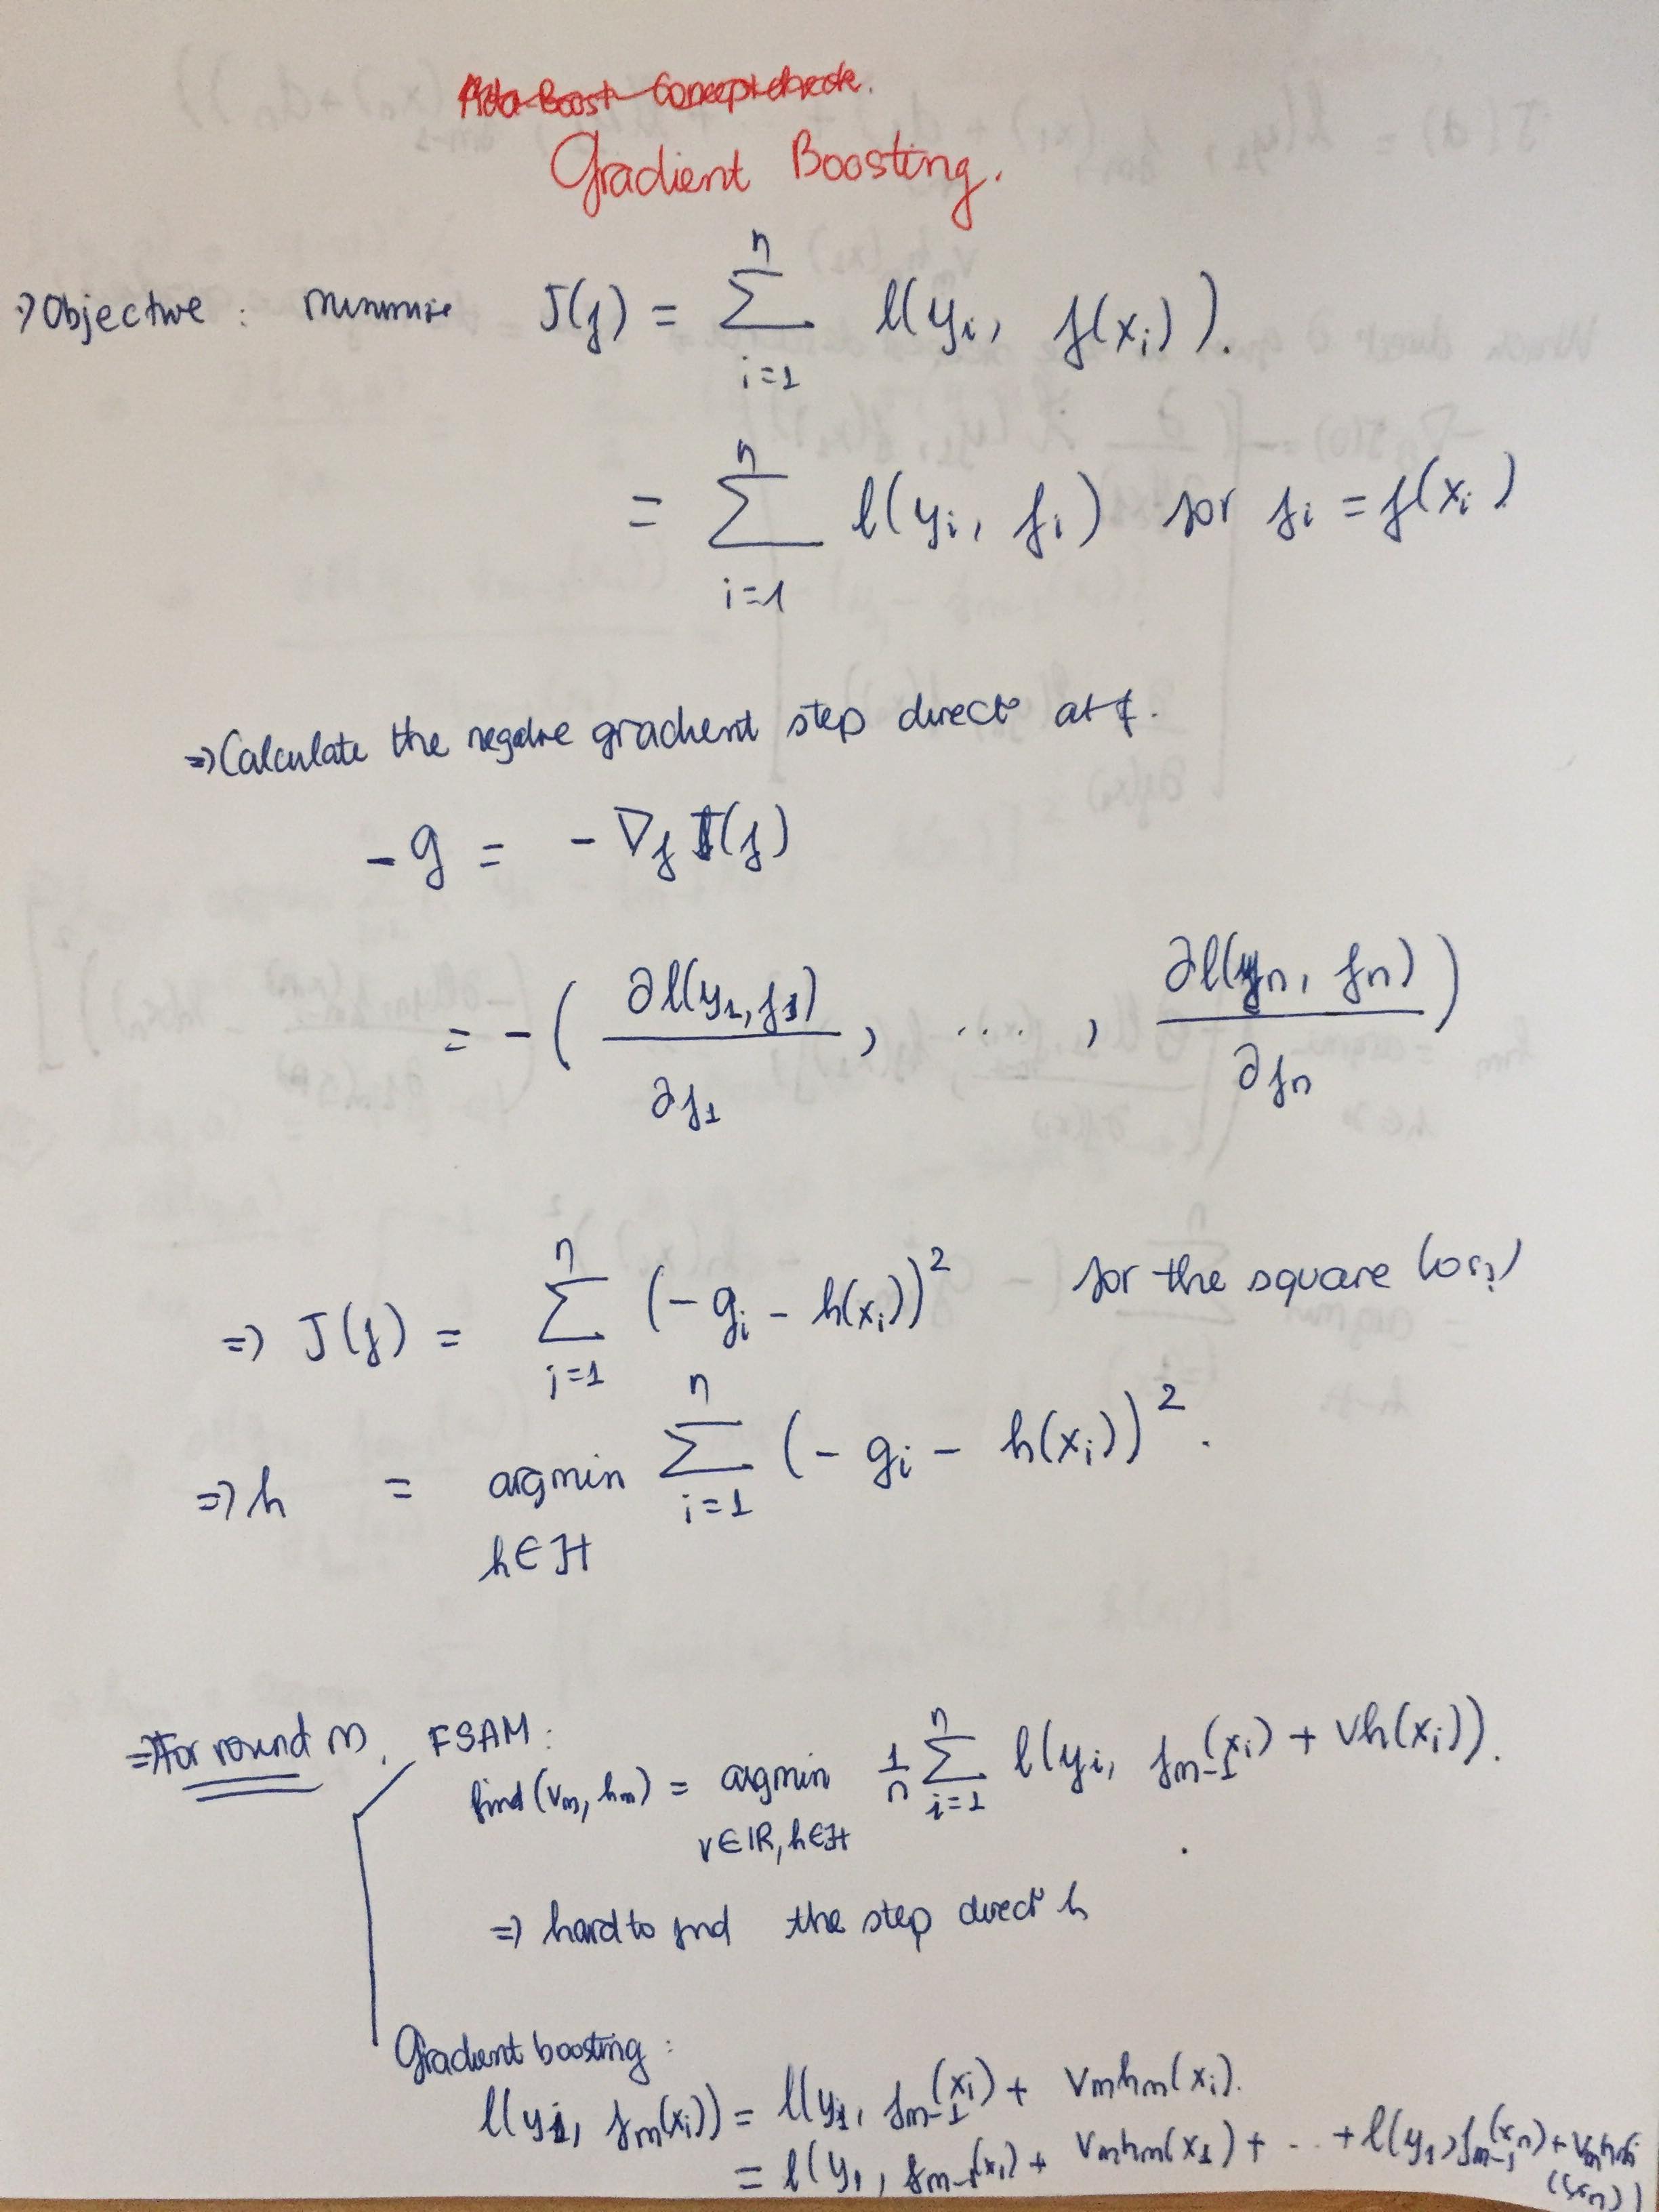 Ada Boost Concept check.
Gradient Boosting.
⇒ Objective : minimise J(f) = ∑_{i=1}^{n} l(y_i, f(x_i)).
= ∑_{i=1}^{n} l(y_i, f_i) for f_i = f(x_i)
⇒ Calculate the negative gradient step direct° at f.
-g = -∇_f J(f)
= -( ∂l(y_1, f_1)/∂f_1 , .... , ∂l(y_n, f_n)/∂f_n )
⇒ J(f) = ∑_{i=1}^{n} (-g_i - h(x_i))² for the square loss)
⇒ h = argmin_{h∈H} ∑_{i=1}^{n} (-g_i - h(x_i))².
⇒ For round m, FSAM :
find (v_m, h_m) = argmin_{v∈ℝ, h∈H} 1/n ∑_{i=1}^{n} l(y_i, f_{m-1}(x_i) + vh(x_i)).
⇒ hard to find the step direct° h
Gradient boosting :
l(y_i, f_m(x_i)) = l(y_1, f_{m-1}(x_i) + v_m h_m(x_i).
= l(y_1, f_{m-1}(x_1) + v_m h_m(x_1) + ... + l(y_1, f_{m-1}(x_n) + v_m h_m (x_n))